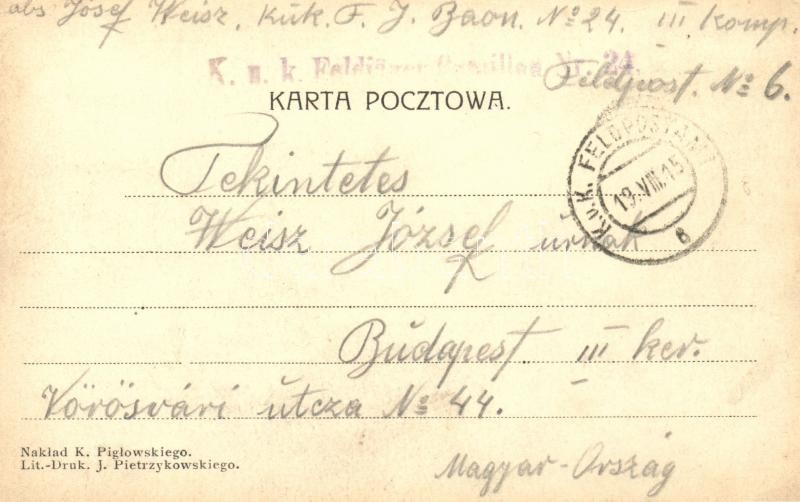 abs József Weisz, kuk. F. J. Baon. № 24. III komp.
K. u. k. Feldjäger Nr. 24.
Feldpost. № 6.
KARTA POCZTOWA.
K.u.K. FELDPOSTAMT
19.VIII.15
6
Tekintetes
Weisz József úrnak
Budapest III ker.
Vörösvári útcza № 44.
Nakład K. Pigłowskiego.
Lit.-Druk. J. Pietrzykowskiego.
Magyar-Ország